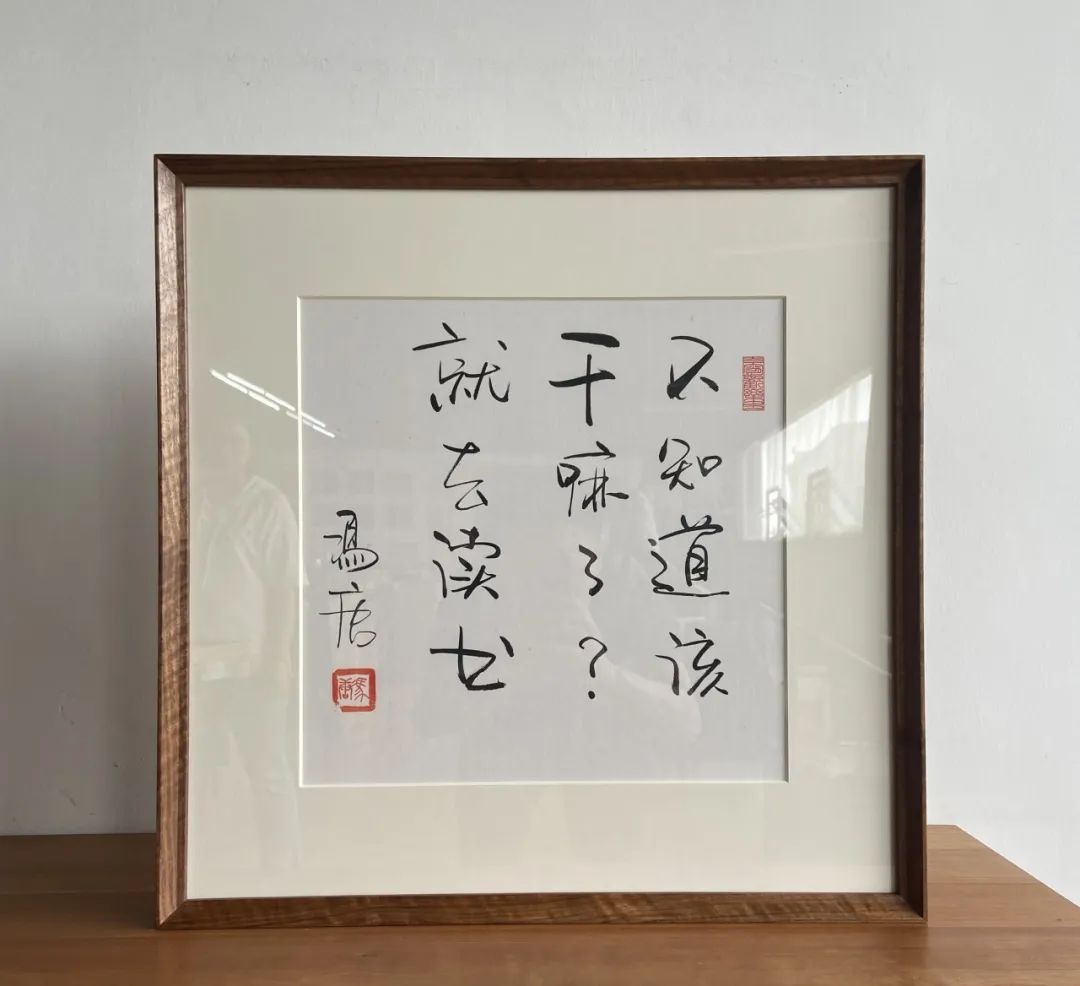 不知道该
干嘛了？
就去读书
冯唐